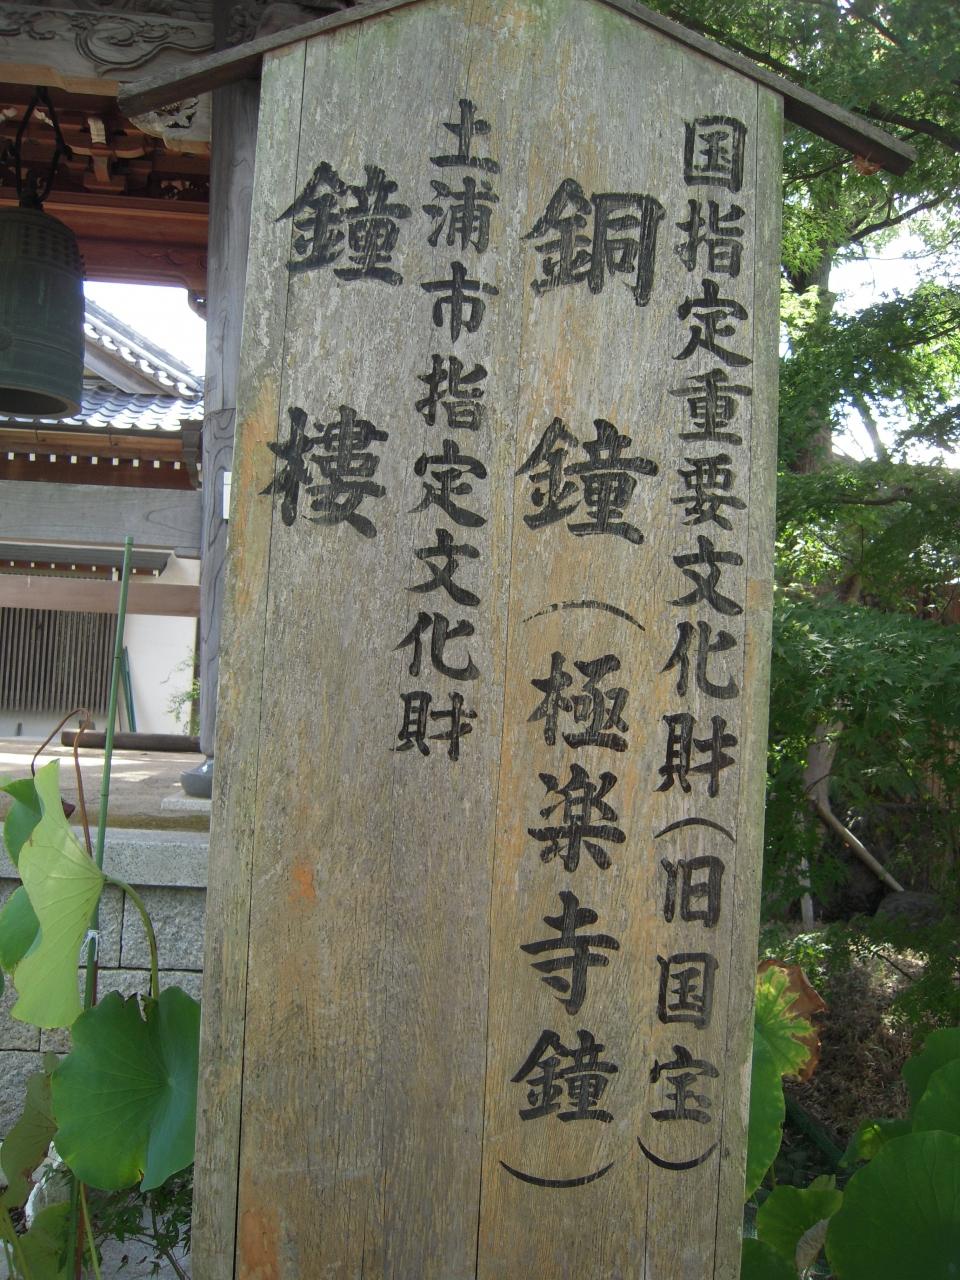 国指定重要文化財（旧国宝）
銅鐘（極楽寺鐘）
土浦市指定文化財
鐘樓